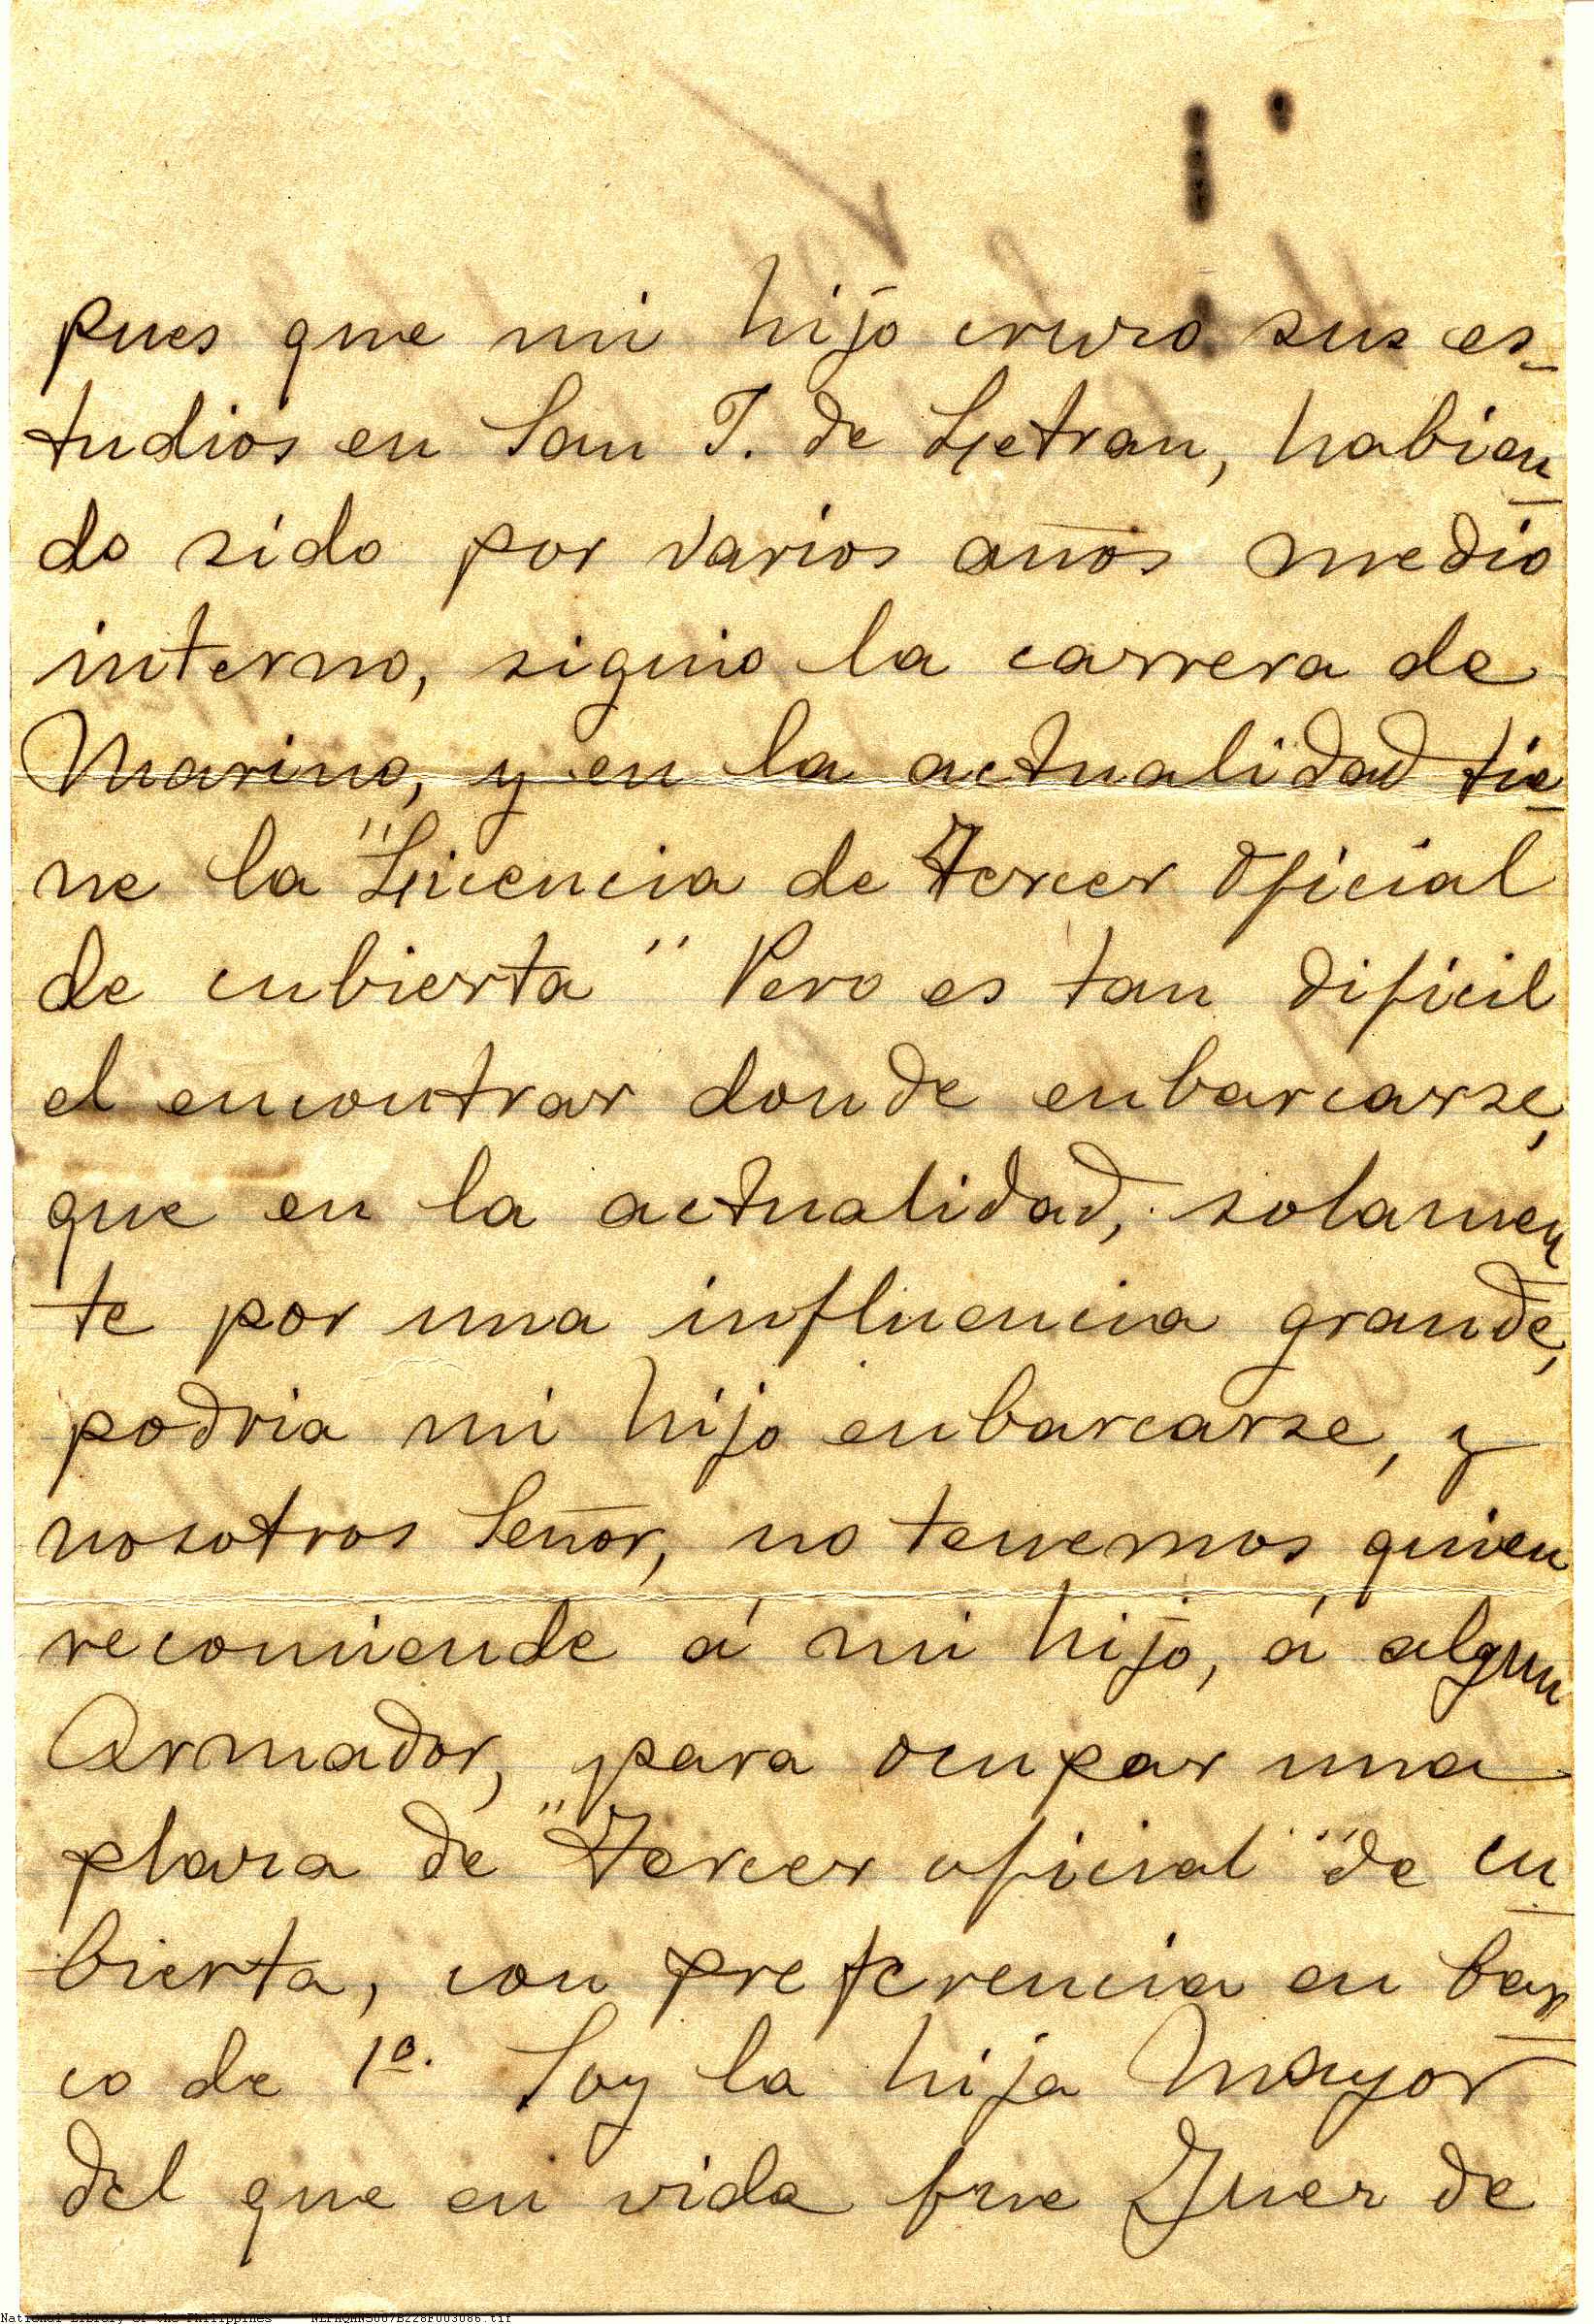 pues que mi hijo curso sus es-
tudios en San J. de Letran, habien
do sido por varios años medio
interno, siguio la carrera de
Marino, y en la actualidad tie
ne la "Licencia de Tercer Oficial
de cubierta" Pero es tan dificil
el encontrar donde enbarcarse,
que en la actualidad, solamen
te por una influencia grande,
podria mi hijo enbarcarse, y
nosotros Señor, no tenemos quien
recomiende á mi hijo, á algun
Armador, para ocupar una
plaza de "Tercer oficial" de cu
bierta, con preferencia en bar
co de 1a. Soy la hija Mayor
del que en vida fue Juez de
National Library of the Philippines